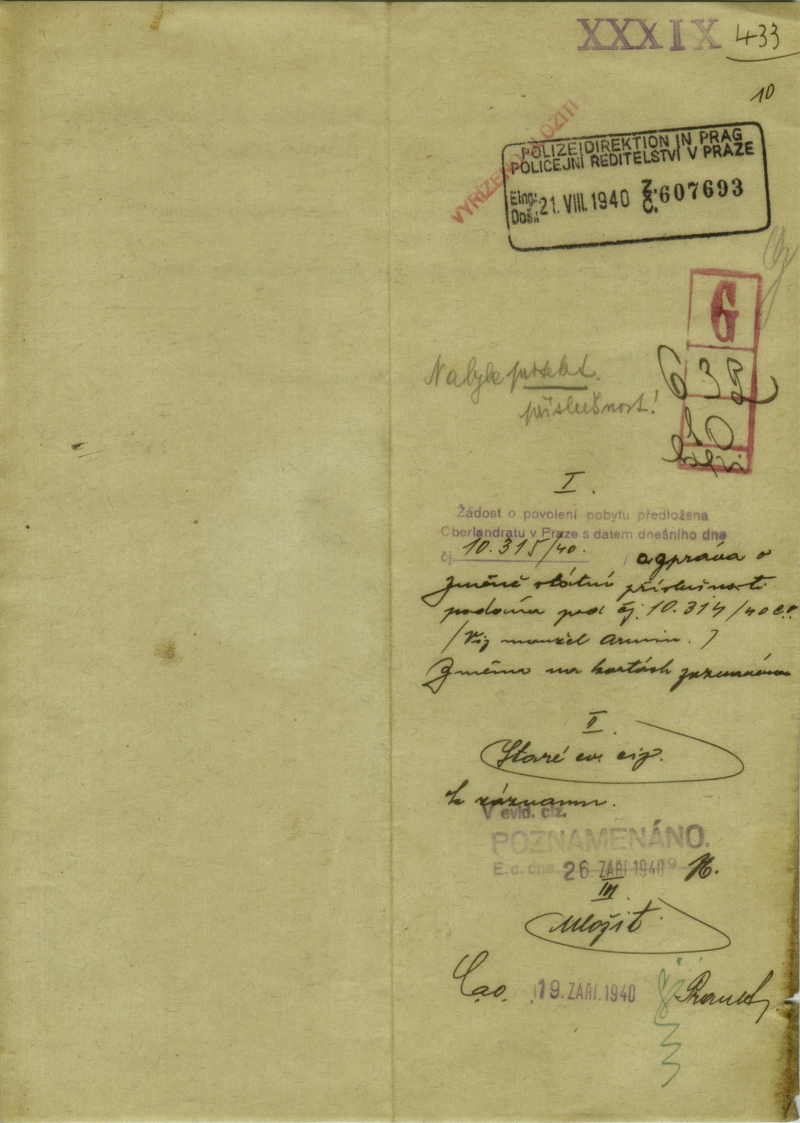 XXXIX 433
10
VYŘÍZENO ULOŽITI
POLIZEIDIREKTION IN PRAG
POLICEJNÍ ŘEDITELSTVÍ V PRAZE
Eing.:
Doš.: 21. VIII. 1940 Z. Č. 607693
G
6 38
10
Nabyla protekt.
příslušnost!
I.
Žádost o povolení pobytu předložena
Oberlandratu v Praze s datem dnešního dne
čj. 10.315/40. , a zpráva o
změně státní příslušnosti
podána pod čj. 10.314/40
/Viz manžel Armin. /
Změna na kartách zaznamenána
II.
Staré ev. ciz.
k záznamu.
V evid. ciz.
POZNAMENÁNO.
E. c. dne 26. ZÁŘÍ 1940
III.
Uložit.
19. ZÁŘÍ. 1940